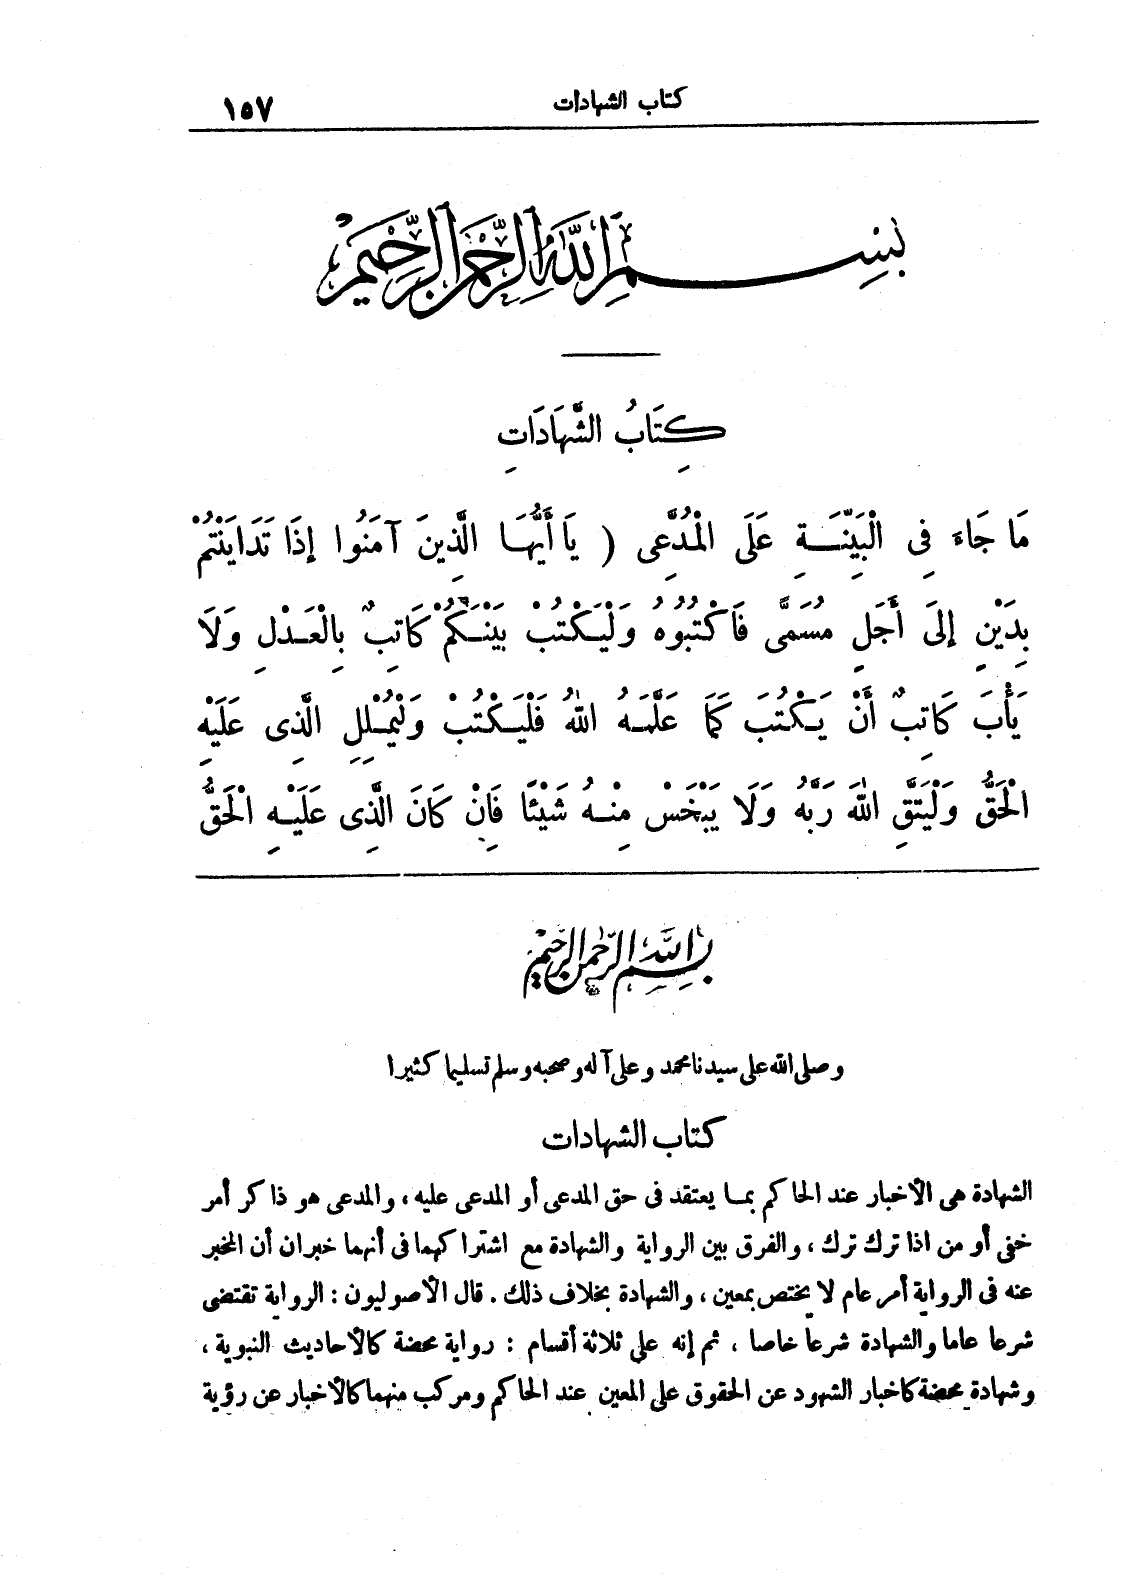 كتاب الشهادات ١٥٧
بِسْمِ اللهِ الرَّحْمنِ الرَّحِيمِ
كِتَابُ الشَّهَادَاتِ
مَا جَاءَ فِى الْبَيِّنَةِ عَلَى الْمُدَّعِى ( يَا أَيُّهَا الَّذِينَ آمَنُوا إِذَا تَدَايَنْتُمْ
بِدَيْنٍ إِلَى أَجَلٍ مُسَمًّى فَاكْتُبُوهُ وَلْيَكْتُبْ بَيْنَكُمْ كَاتِبٌ بِالْعَدْلِ وَلَا
يَأْبَ كَاتِبٌ أَنْ يَكْتُبَ كَمَا عَلَّمَهُ اللهُ فَلْيَكْتُبْ وَلْيُمْلِلِ الَّذِى عَلَيْهِ
الْحَقُّ وَلْيَتَّقِ اللهَ رَبَّهُ وَلَا يَبْخَسْ مِنْهُ شَيْئًا فَإِنْ كَانَ الَّذِى عَلَيْهِ الْحَقُّ
بسم الله الرحمن الرحيم
وصلى الله على سيدنا محمد وعلى آله وصحبه وسلم تسليما كثيرا
كتاب الشهادات
الشهادة هى الأخبار عند الحاكم بما يعتقد فى حق المدعى أو المدعى عليه ، والمدعى هو ذاكر أمر
خفى أو من اذا ترك ترك ، والفرق بين الرواية والشهادة مع اشتراكهما فى أنهما خبران أن المخبر
عنه فى الرواية أمر عام لا يختص بمعين ، والشهادة بخلاف ذلك . قال الأصوليون : الرواية تقتضى
شرعا عاما والشهادة شرعا خاصا ، ثم إنه على ثلاثة أقسام : رواية محضة كالأحاديث النبوية ،
وشهادة محضة كاخبار الشهود عن الحقوق على المعين عند الحاكم ومركب منهما كالأخبار عن رؤية